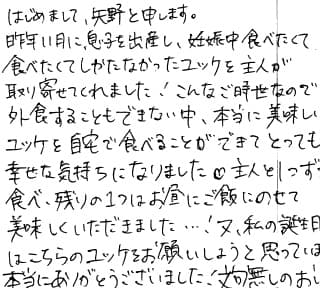 はじめまして、矢野と申します。
昨年11月に息子を出産し、妊娠中食べたくて
食べたくてしかたなかったユッケを主人が
取り寄せてくれました！こんなご時世なので
外食することもできない中、本当に美味しい
ユッケを自宅で食べることができてとっても
幸せな気持ちになりました♡主人と1つず
食べ、残りの1つはお昼にご飯にのせて
美味しくいただきました…！又、私の誕生日
はこちらのユッケをお願いしようと思っていま
本当にありがとうございました！文句無しのおい